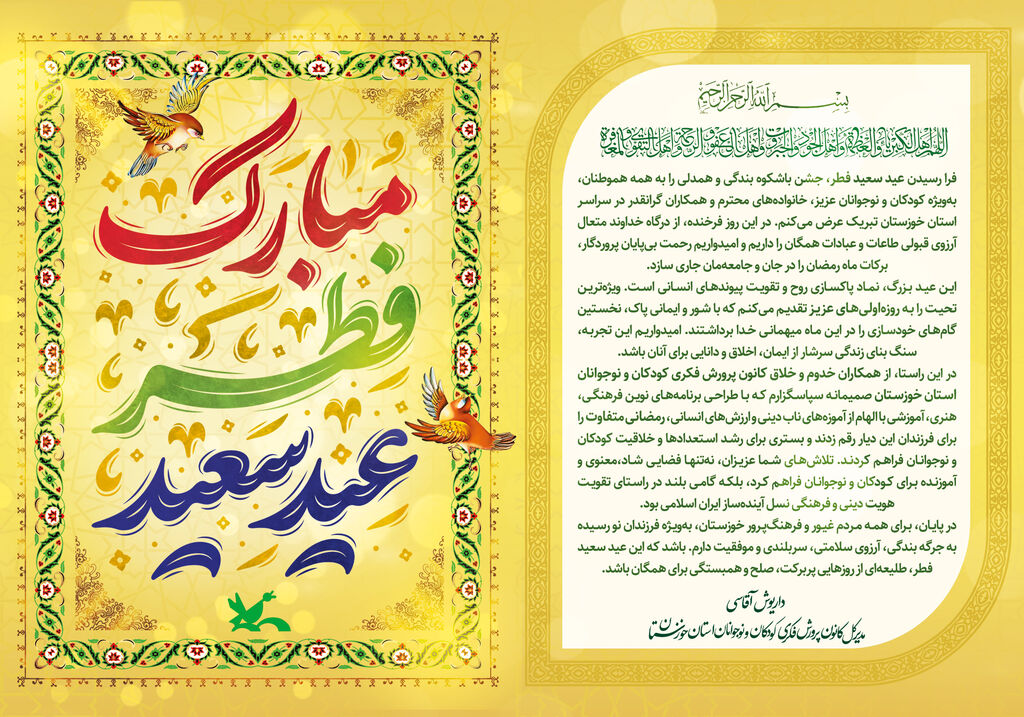 عید سعید
فطر
مبارک
بسم الله الرحمن الرحیم
اللهم اهل الکبریاء و العظمة و اهل الجود و الجبروت و اهل العفو و الرحمة و اهل التقوی و المغفرة
فرا رسیدن عید سعید فطر، جشن باشکوه بندگی و همدلی را به همه هموطنان،
به‌ویژه کودکان و نوجوانان عزیز، خانواده‌های محترم و همکاران گرانقدر در سراسر
استان خوزستان تبریک عرض می‌کنم. در این روز فرخنده، از درگاه خداوند متعال
آرزوی قبولی طاعات و عبادات همگان را داریم و امیدواریم رحمت بی‌پایان پروردگار،
برکات ماه رمضان را در جان و جامعه‌مان جاری سازد.
این عید بزرگ، نماد پاکسازی روح و تقویت پیوندهای انسانی است. ویژه‌ترین
تحیت را به روزه‌اولی‌های عزیز تقدیم می‌کنم که با شور و ایمانی پاک، نخستین
گام‌های خودسازی را در این ماه میهمانی خدا برداشتند. امیدواریم این تجربه،
سنگ بنای زندگی سرشار از ایمان، اخلاق و دانایی برای آنان باشد.
در این راستا، از همکاران خدوم و خلاق کانون پرورش فکری کودکان و نوجوانان
استان خوزستان صمیمانه سپاسگزارم که با طراحی برنامه‌های نوین فرهنگی،
هنری، آموزشی با الهام از آموزه‌های ناب دینی و ارزش‌های انسانی، رمضانی متفاوت را
برای فرزندان این دیار رقم زدند و بستری برای رشد استعدادها و خلاقیت کودکان
و نوجوانان فراهم کردند. تلاش‌های شما عزیزان، نه‌تنها فضایی شاد،معنوی و
آموزنده برای کودکان و نوجوانان فراهم کرد، بلکه گامی بلند در راستای تقویت
هویت دینی و فرهنگی نسل آینده‌ساز ایران اسلامی بود.
در پایان، برای همه مردم غیور و فرهنگ‌پرور خوزستان، به‌ویژه فرزندان نو رسیده
به جرگه بندگی، آرزوی سلامتی، سربلندی و موفقیت دارم. باشد که این عید سعید
فطر، طلیعه‌ای از روزهایی پربرکت، صلح و همبستگی برای همگان باشد.
داریوش آقاسی
مدیرکل کانون پرورش فکری کودکان و نوجوانان استان خوزستان